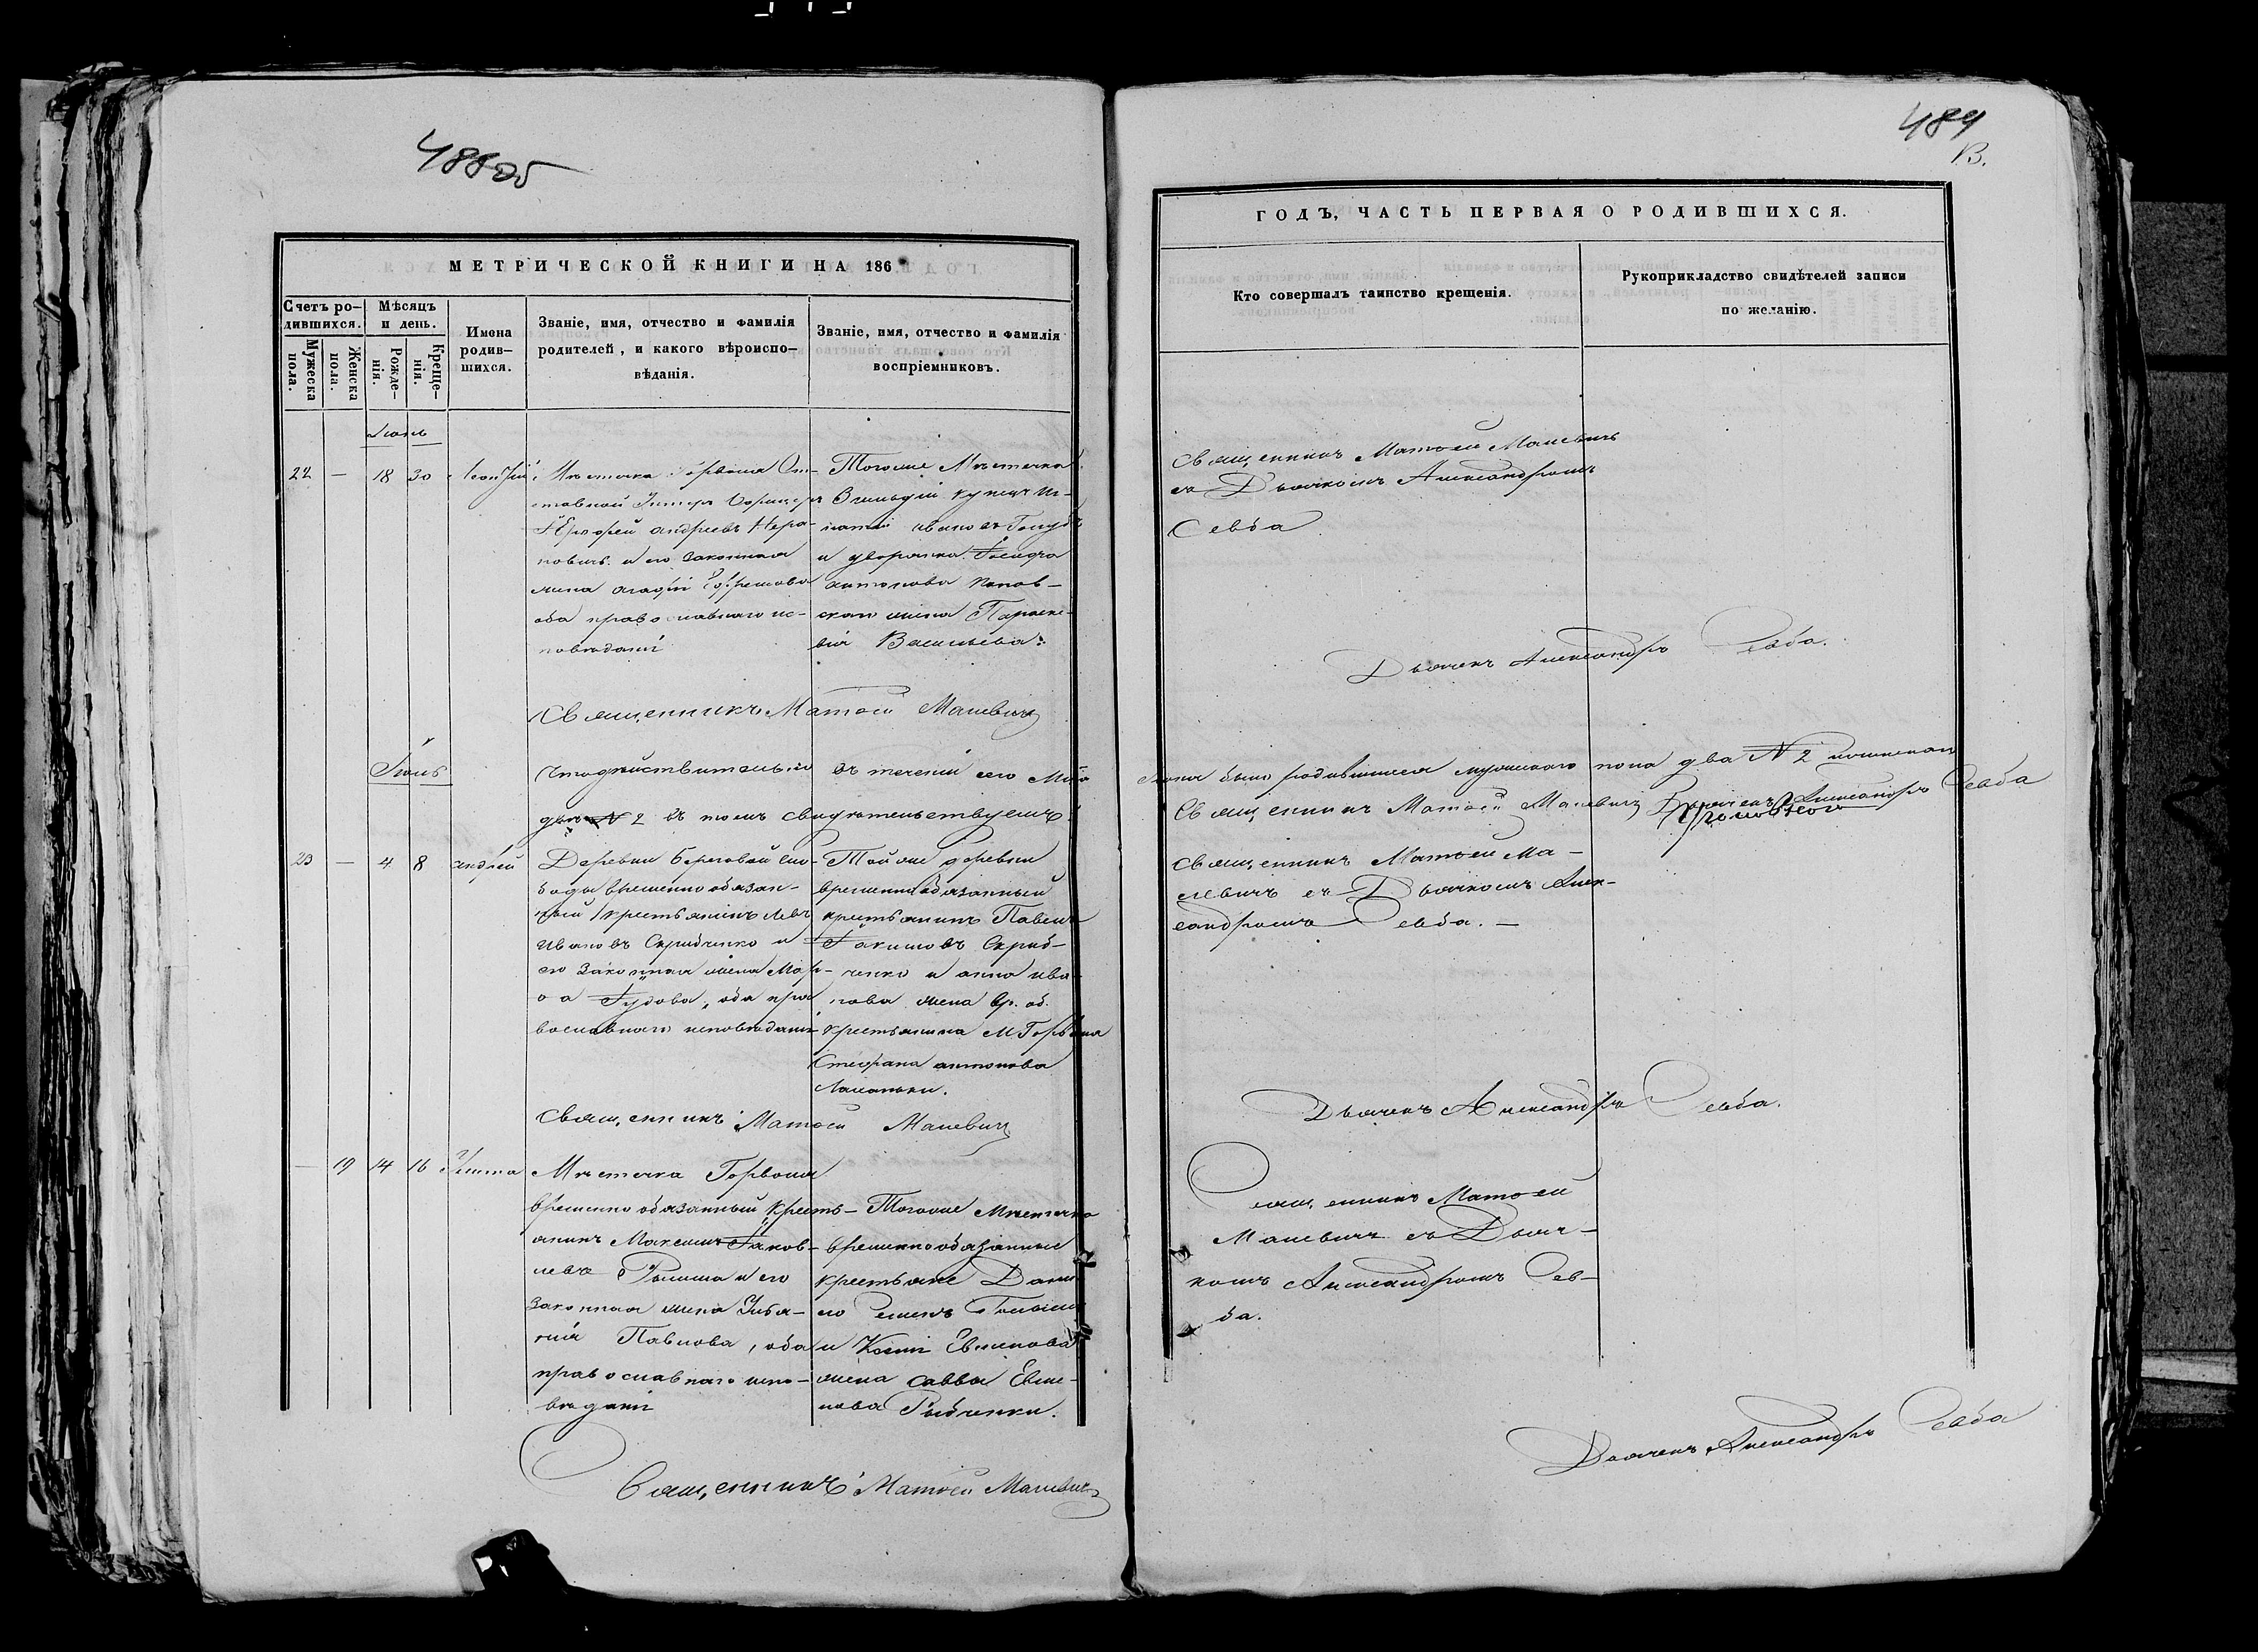 488об
МЕТРИЧЕСКОЙ КНИГИ НА 186
Счетъ ро-
дившихся.
Мѣсяцъ
и день.
Мужеска
пола.
Женска
пола.
Рожде-
нія.
Креще-
нія.
Имена
родив-
шихся.
Званіе, имя, отчество и фамилія
родителей, и какого вѣроиспо-
вѣданія.
Званіе, имя, отчество и фамилія
воспріемниковъ.
Іюнь
22 — 18 30
Мѣстечка Горволя От-
ставной Унтеръ Офицеръ
Ерофей Андреевъ
и его законная
жена Агафія Ефремова
оба православнаго ис-
повѣданія
Тогоже Мѣстечка
3 гильдіи купецъ Иг-
натій Ивановъ Голубъ
и дворянка Іосифа
Антонова
жена Параске-
вія Васильева.
Священникъ Матѳей Малевичъ
Іюль
Что дѣйствительно въ теченіи сего М-ца
два N 2 въ томъ свидѣтельствуемъ
23 — 4 8 Андрей
Деревни Береговой Сло-
боды временнообязан-
ный крестьянинъ Левъ
Ивановъ Скрибченко и
его законная жена Мар-
ѳа Іудова, оба пра
вославнаго исповѣданія
Тойже деревни
временнообязанный
крестьянинъ Павелъ
Іакимовъ Скриб-
ченко и Анна Ива-
нова жена вр. об.
крестьянина М. Горволя
Стефана Антонова
Священникъ Матѳей Малевичъ
— 19 14 16 Улита
Мѣстечка Горволя
временнообязанный кресть-
янинъ Максимъ Іаков-
левъ и его
законная жена Улья-
нія Павлова, оба
православнаго испо-
вѣданія
Тогоже Мѣстечка
временнообязанные
крестьяне Дани
ло
и Ксенія
жена Саввы
Рыбченки.
Священникъ Матѳей Малевичъ
489
В.
ГОДЪ, ЧАСТЬ ПЕРВАЯ О РОДИВШИХСЯ.
Кто совершалъ таинство крещенія.
Рукоприкладство свидѣтелей записи
по желанію.
Священникъ Матѳей Малевичъ
съ Дьячкомъ Александромъ
Севба
Дьячекъ Александръ Севба.
Іюня было родившихся мужескаго пола два N 2
Священникъ Матѳей Малевичъ Дьячекъ Александръ Севба
Священникъ Матѳей Ма-
левичъ съ Дьячкомъ Алек-
сандромъ Севба. —
Дьячекъ Александръ Севба.
Священникъ Матѳей
Малевичъ съ Дьяч-
комъ Александромъ Сев-
ба.
Дьячекъ Александръ Севба